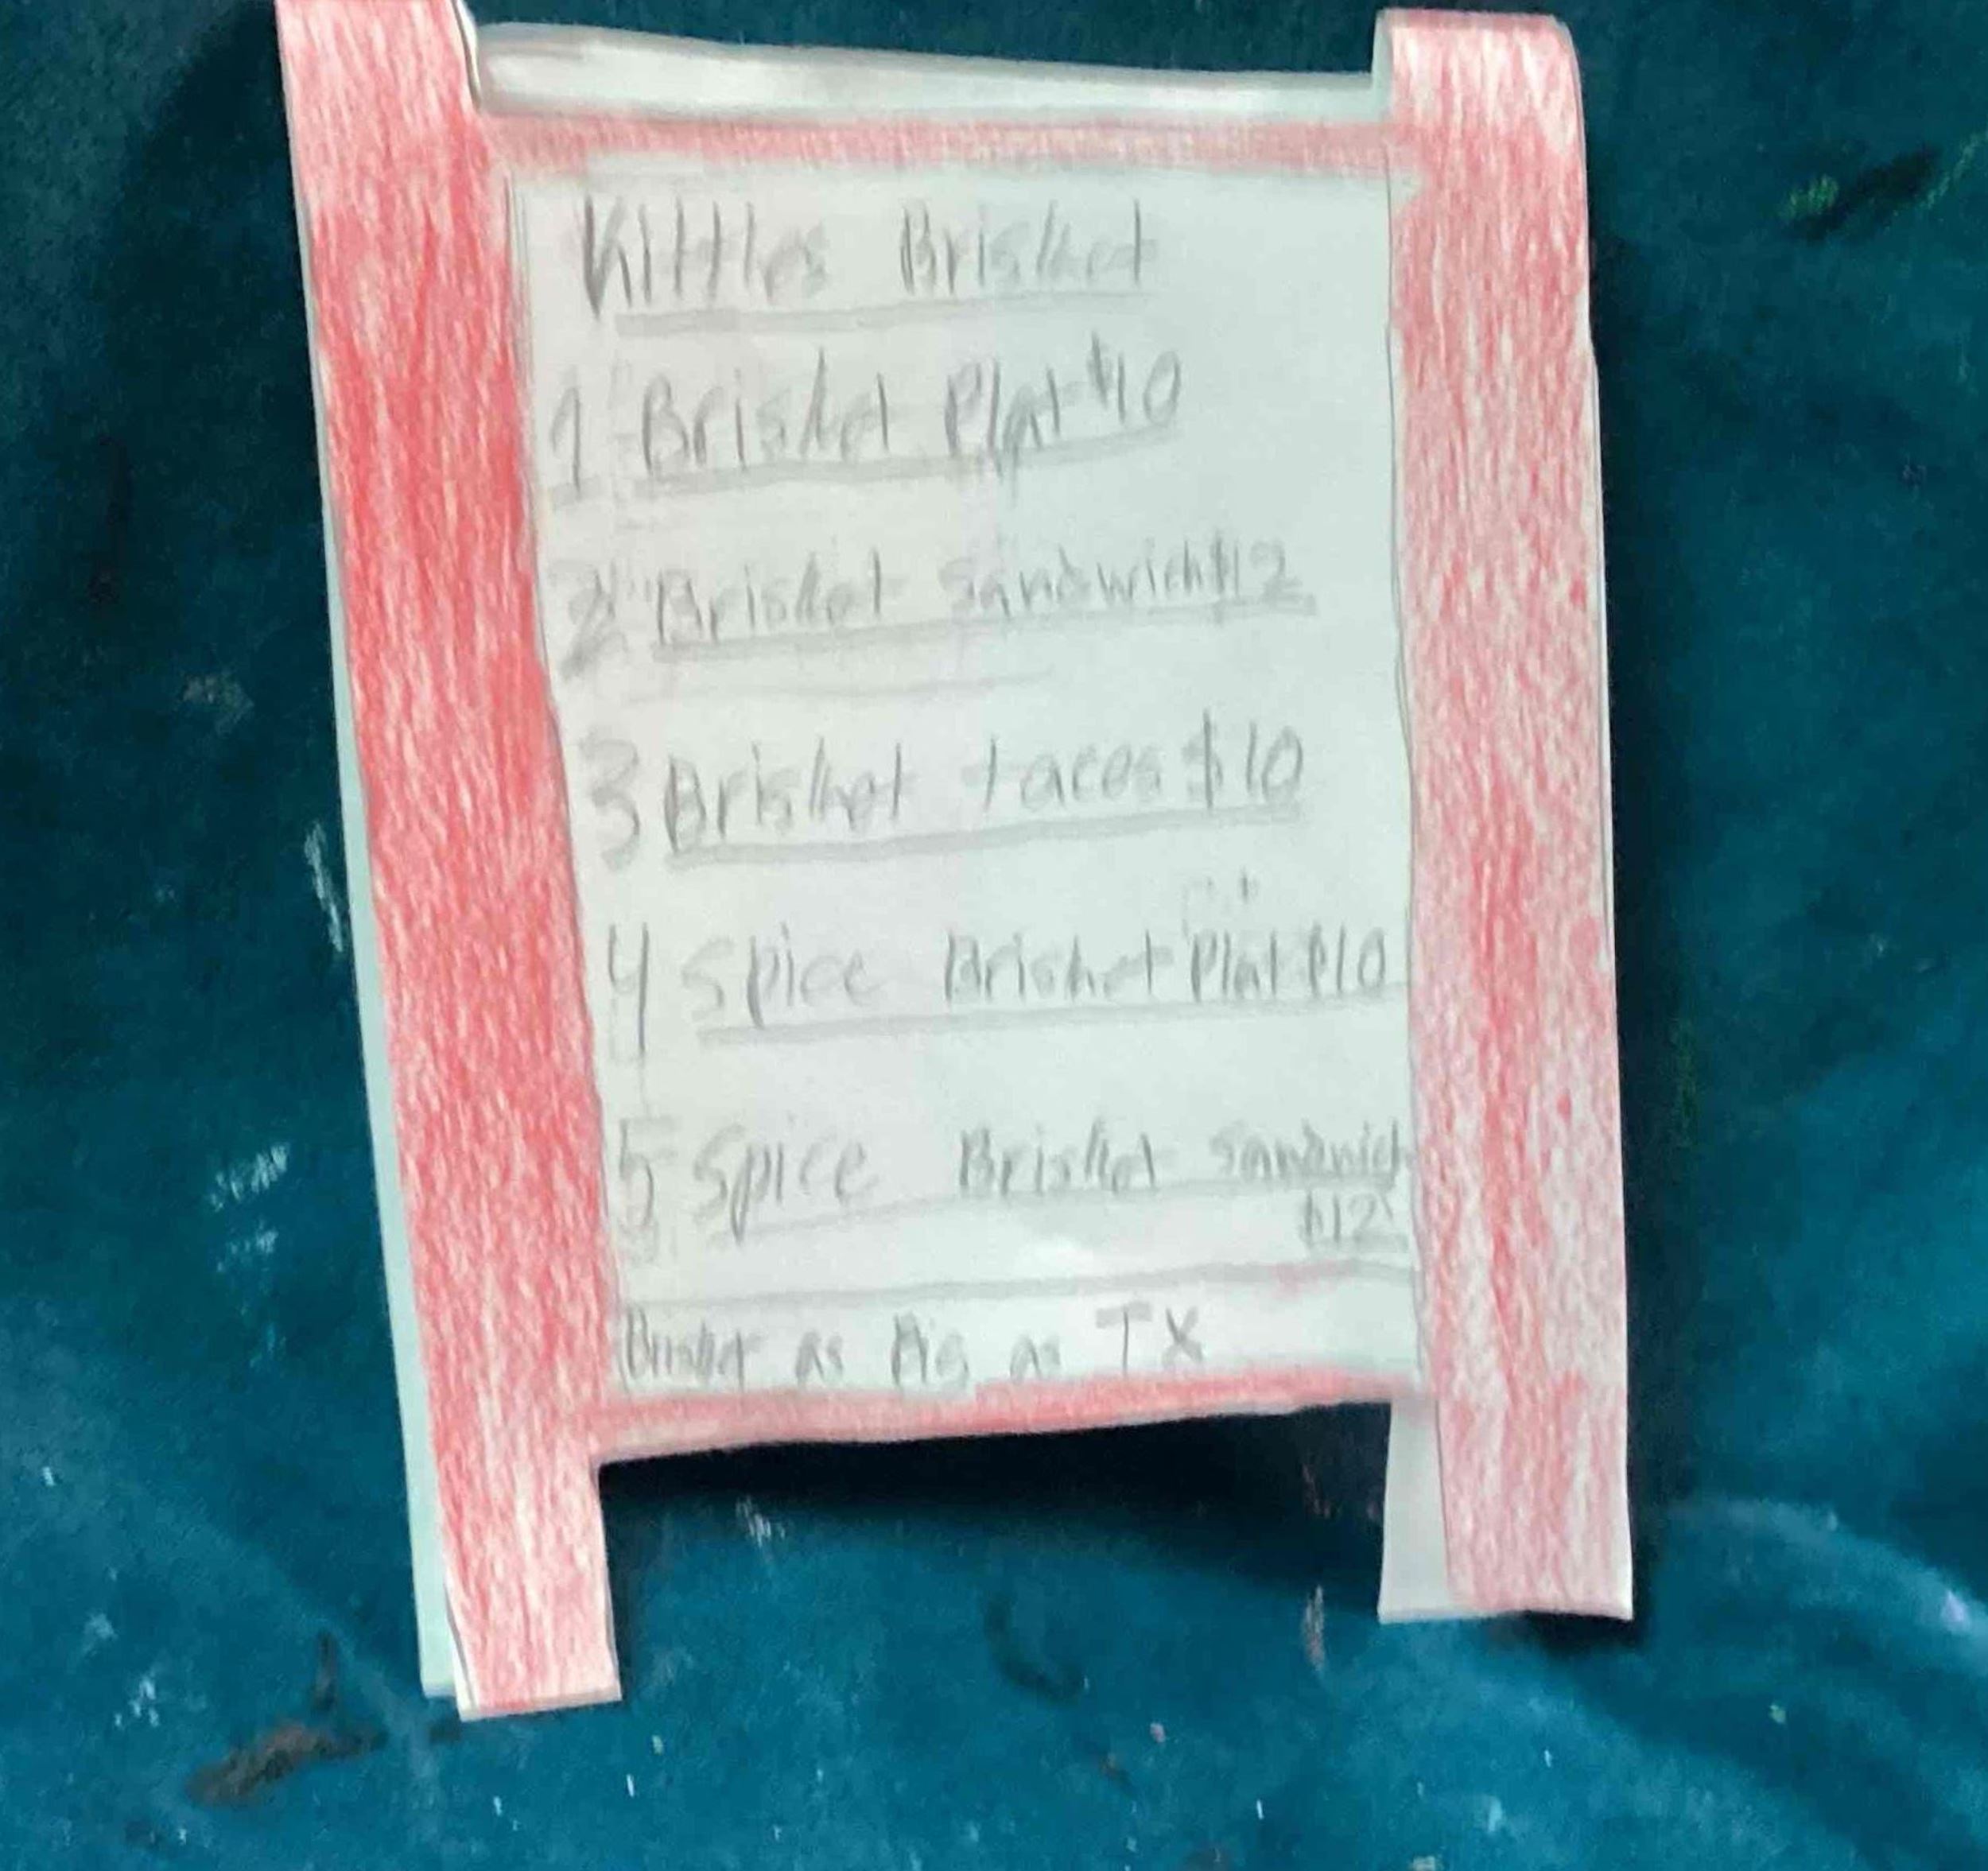 Kittles Brisket
1 Brisket Plat $10
2 Brisket Sandwich $12
3 Brisket tacos $10
4 Spice Brisket Plat $10
5 Spice Brisket Sandwich
$12
Brisket as Big as TX